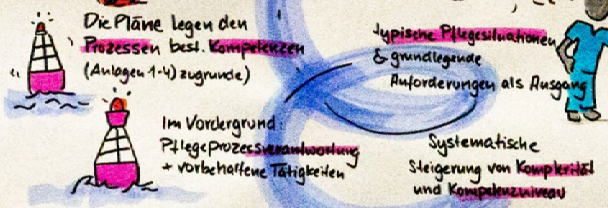 Die Pläne legen den
Prozessen best. Kompetenzen
(Anlagen 1-4) zugrunde)
Im Vordergrund:
Pflegeprozessverantwortung
+ vorbehaltene Tätigkeiten
typische Pflegesituationen
& grundlegende
Anforderungen als Ausgang
Systematische
Steigerung von Komplexität
und Kompetenzniveau